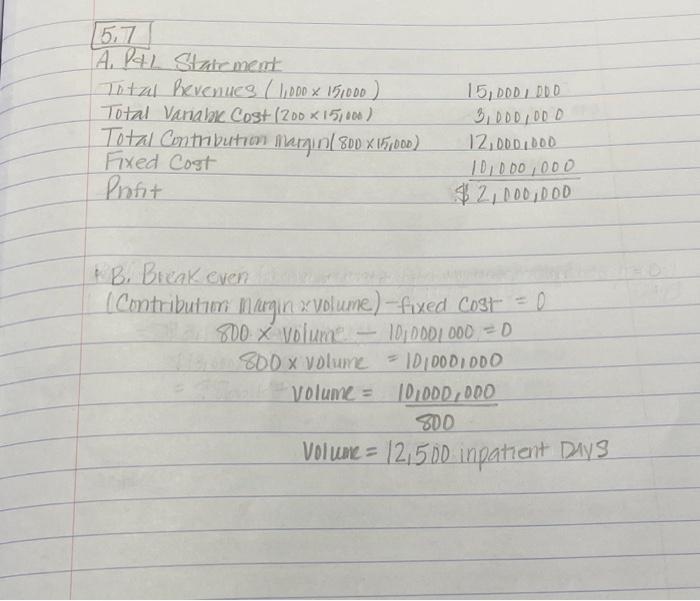 5.7
A. P&L Statement
Total Revenues (1,000 x 15,000) 15,000,000
Total Variable Cost (200 x 15,000) 3,000,000
Total Contribution Margin (800 x 15,000) 12,000,000
Fixed Cost 10,000,000
Profit $ 2,000,000
B. Break even
(Contribution Margin x volume) - fixed Cost = 0
800 x volume - 10,000,000 = 0
800 x volume = 10,000,000
volume = 10,000,000
800
Volume = 12,500 inpatient DAYS